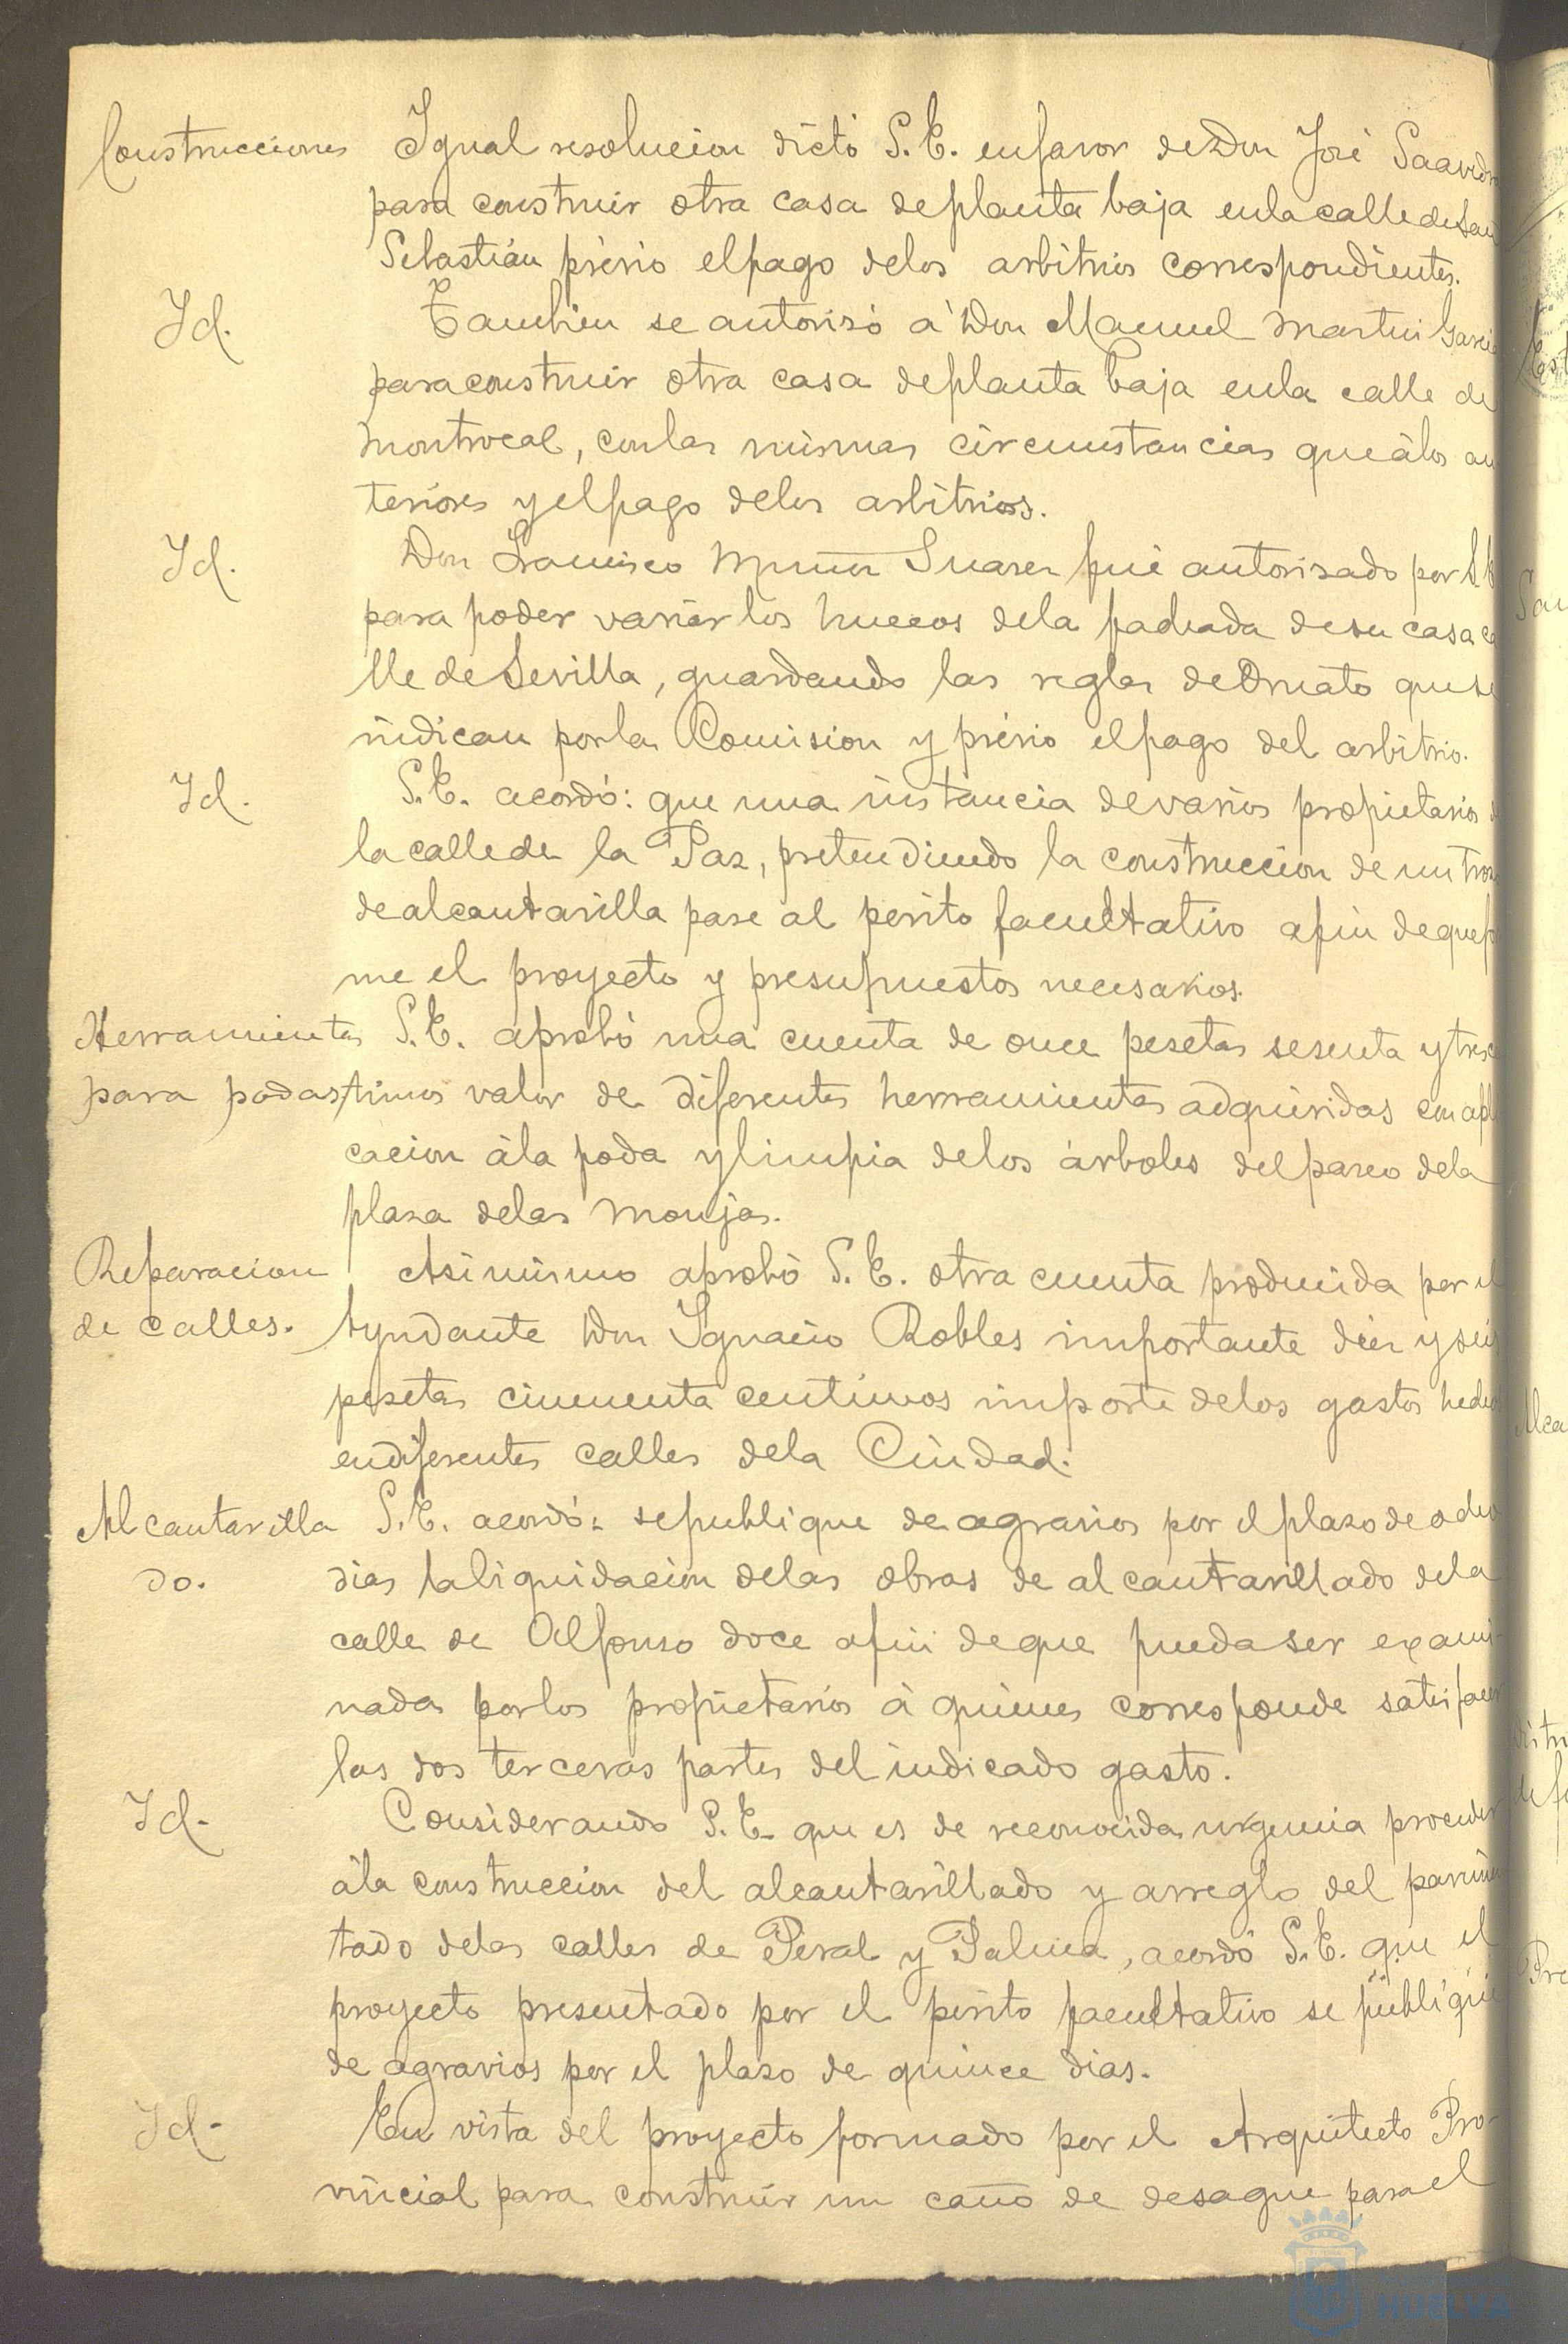 Construcciones Igual resolucion dictó S. E. en favor de Don José Saavedra
para construir otra casa de planta baja en la calle de San
Sebastián prévio el pago de los arbitrios correspondientes.
Id. Tambien se autorizó á Don Manuel Martin Garcia
para construir otra casa de planta baja en la calle de
Montrocal, con las mismas circunstancias que á los an
teriores y el pago de los arbitrios.
Id. Don Francisco Muñoz Suarez fué autorizado por S. E.
para poder variar los huecos de la fachada de su casa ca
lle de Sevilla, guardando las reglas de Ornato que se
indican por la Comision y prévio el pago del arbitrio.
Id. S. E. acordó: que una instancia de varios propietarios de
la calle de la Paz, pretendiendo la construccion de un trozo
de alcantarilla pase al perito facultativo a fin de que for
me el proyecto y presupuestos necesarios.
Herramientas S. E. aprobó una cuenta de once pesetas sesenta y tres cen
para podas timos valor de diferentes herramientas adquiridas con apli
cacion á la poda y limpia de los árboles del paseo de la
plaza de las Monjas.
Reparacion Asi mismo aprobó S. E. otra cuenta producida por el
de calles. Ayudante Don Ignacio Robles importante diez y seis
pesetas cincuenta centimos importe de los gastos hechos
en diferentes calles de la Ciudad.
Alcantarilla S. E. acordó: se publique de agravios por el plazo de ocho
do. dias la liquidacion de las obras de alcantarillado de la
calle de Alfonso doce a fin de que pueda ser exami-
nada por los propietarios á quienes corresponde satisfacer
las dos terceras partes del indicado gasto.
Id. Considerando S. E. que es de reconocida urgencia proceder
á la construccion del alcantarillado y arreglo del pavimen
tado de las calles de Peral y Palma, acordó S. E. que el
proyecto presentado por el perito facultativo se publique
de agravios por el plazo de quince dias.
Id. En vista del proyecto formado por el Arquitecto Pro-
vincial para construir un caño de desague para el
HUELVA